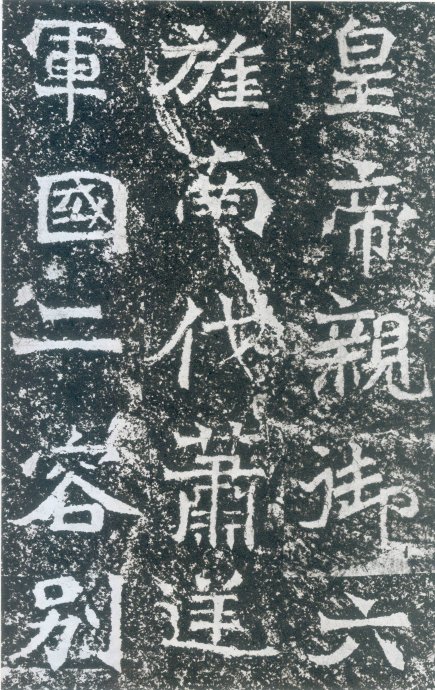 皇帝親御六
旌南伐蕭逆
軍國二容別